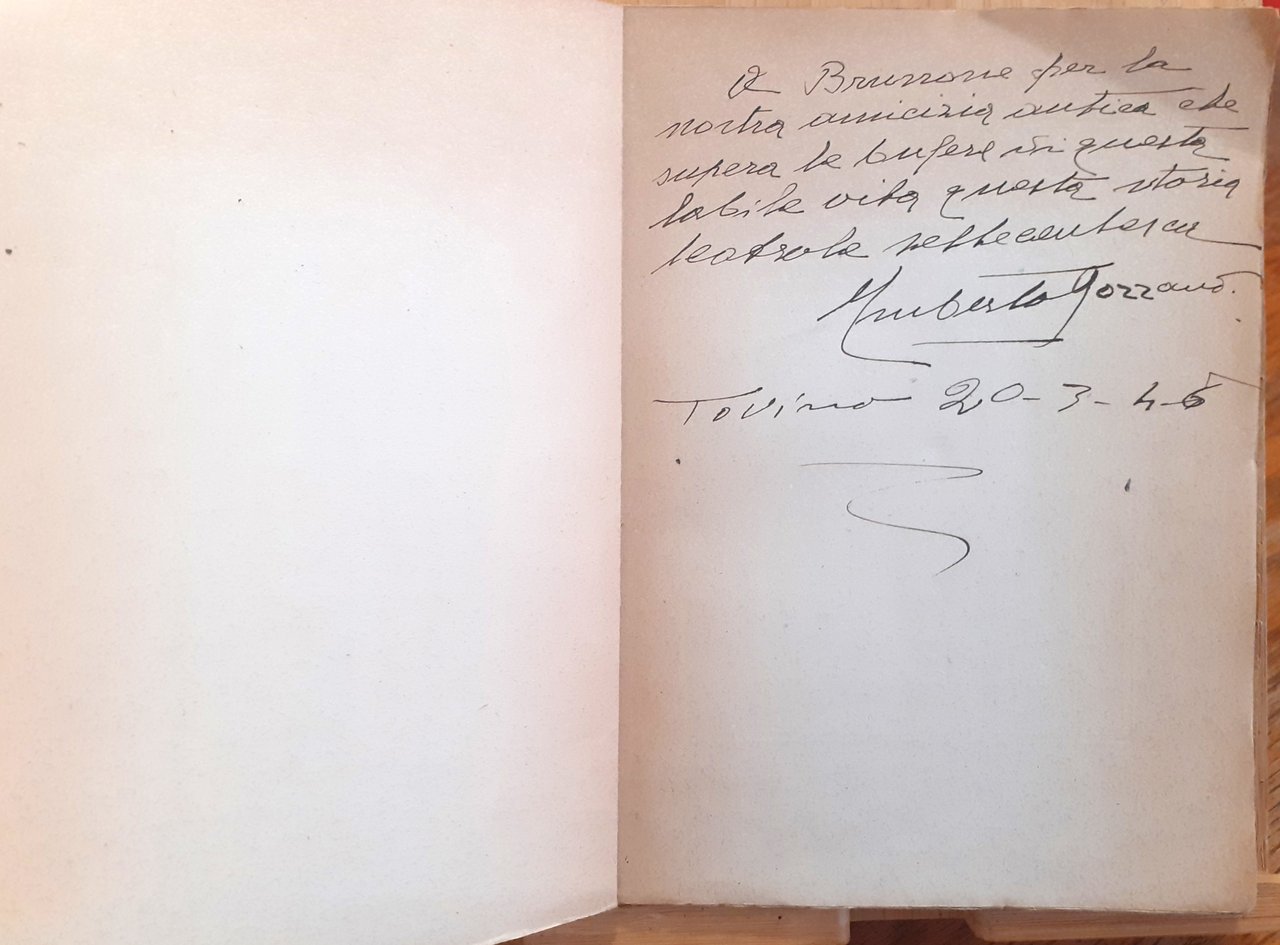 A Brunone per la
nostra amicizia antica che
supera le bufere di questa
labile vita questa storia
teatrale settecentesca
Umberto Gozzano.
Torino 20-3-46